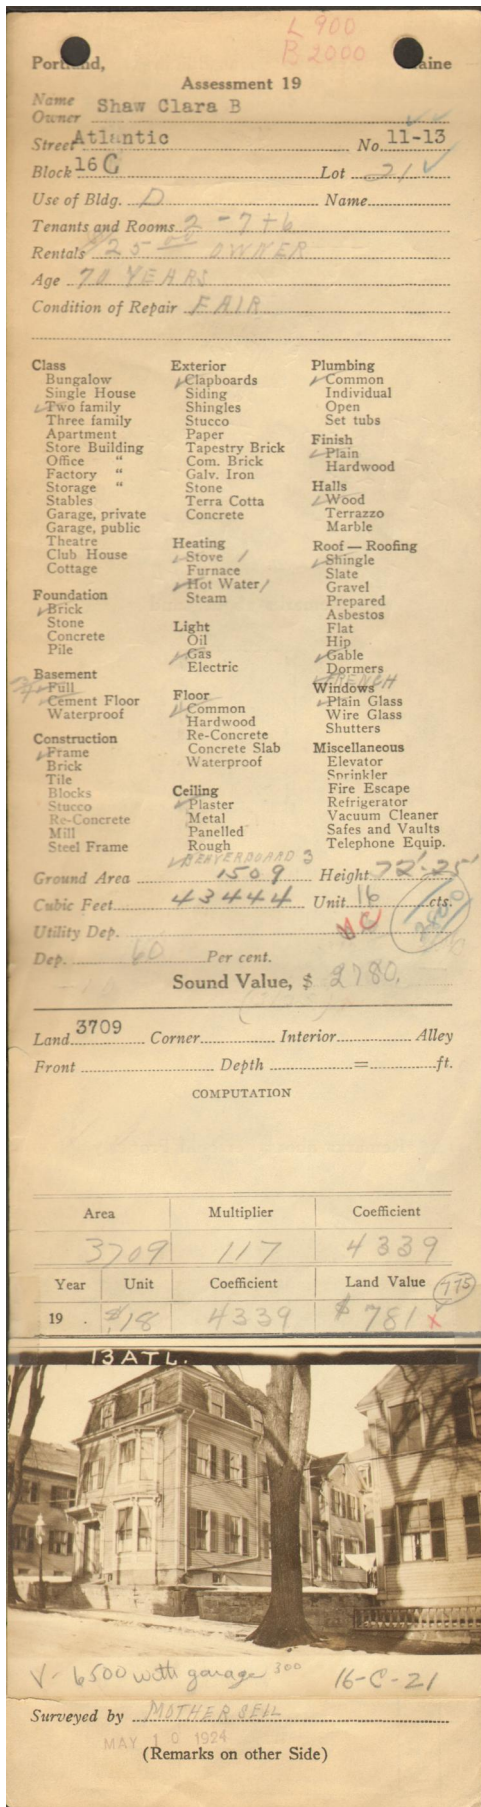 L 900
B 2000
Portland, Maine
Assessment 19
Name
Owner Shaw Clara B
Street Atlantic No. 11-13
Block 16 C Lot 21
Use of Bldg. D Name
Tenants and Rooms 2 - 7 + 6
Rentals $25 00 OWNER
Age 70 YEARS
Condition of Repair FAIR
Class
Bungalow
Single House
Two family
Three family
Apartment
Store Building
Office "
Factory "
Storage "
Stables
Garage, private
Garage, public
Theatre
Club House
Cottage
Foundation
Brick
Stone
Concrete
Pile
Basement
Full
Cement Floor
Waterproof
Construction
Frame
Brick
Tile
Blocks
Stucco
Re-Concrete
Mill
Steel Frame
Exterior
Clapboards
Siding
Shingles
Stucco
Paper
Tapestry Brick
Com. Brick
Galv. Iron
Stone
Terra Cotta
Concrete
Heating
Stove /
Furnace
Hot Water /
Steam
Light
Oil
Gas
Electric
Floor
Common
Hardwood
Re-Concrete
Concrete Slab
Waterproof
Ceiling
Plaster
Metal
Panelled
Rough
BEAVERBOARD 3
Plumbing
Common
Individual
Open
Set tubs
Finish
Plain
Hardwood
Halls
Wood
Terrazzo
Marble
Roof — Roofing
Shingle
Slate
Gravel
Prepared
Asbestos
Flat
Hip
Gable
Dormers
FRENCH
Windows
Plain Glass
Wire Glass
Shutters
Miscellaneous
Elevator
Sprinkler
Fire Escape
Refrigerator
Vacuum Cleaner
Safes and Vaults
Telephone Equip.
Ground Area 1509 Height 72'-25'
Cubic Feet 43444 Unit 16 cts.
Utility Dep.
Dep. 60 Per cent.
Sound Value, $ 2780.
Land 3709 Corner Interior Alley
Front Depth = ft.
COMPUTATION
Area Multiplier Coefficient
3709 117 4339
Year Unit Coefficient Land Value 775
19 . $.18 4339 $ 781 x
13 ATL.
V- 6500 with garage 300 16-C-21
Surveyed by MOTHERSELL
MAY 10 1924
(Remarks on other Side)